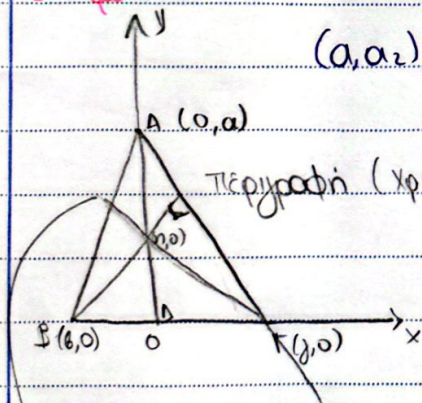 y
(a, a₂)
A (0, a)
περιγραφή (χρ
(η,0)
β (β,0)
Δ
0
Γ (γ,0)
x